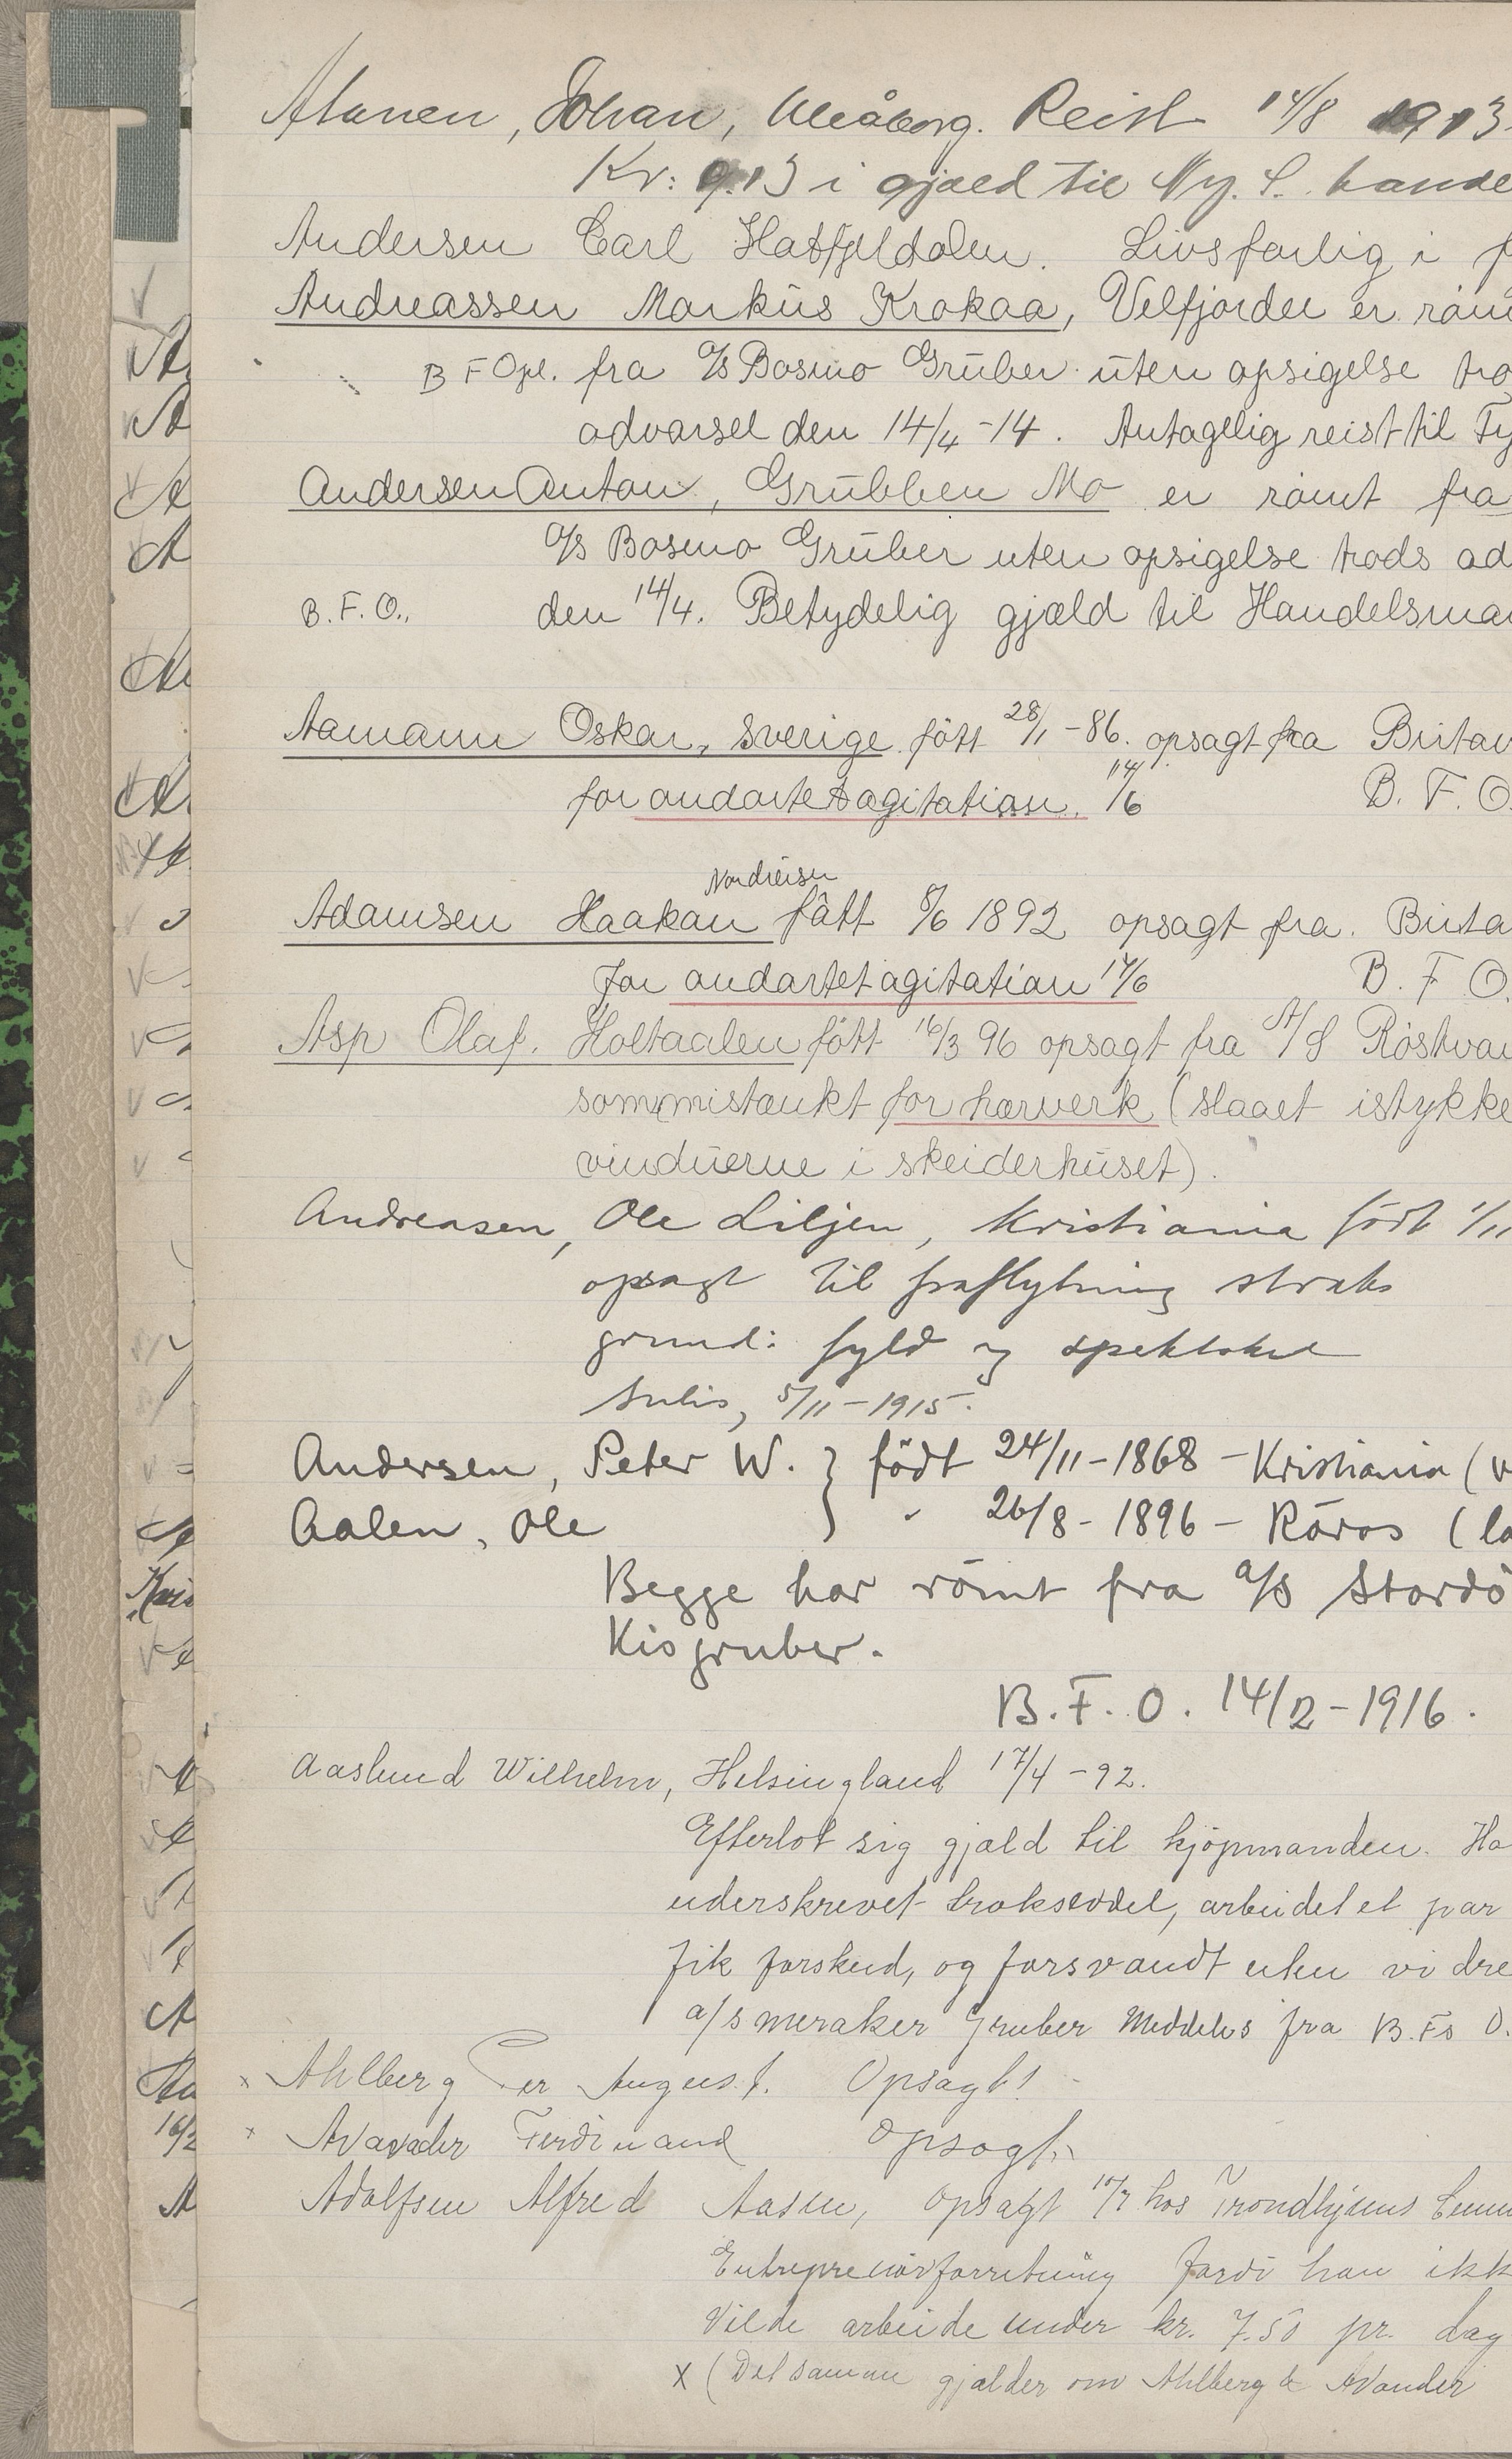 Alanen, Johan, Uleåborg. Reist 14/8 1913
Kr: 9.13 i gjæld til Ny. S. handel
Andersen Carl Hatfjeldalen. Livsfarlig i f
Andreassen Markus Krokaa, Velfjorden er røm
B F Opl. fra A/S Bosmo Gruber uten opsigelse tro
advarsel den 14/4 -14. Antagelig reist til Ty
Andersen Anton, Grubben Mo er rømt fra
A/S Bosmo Gruber uten opsigelse trods ad
B. F. O., den 14/4. Betydelig gjæld til Handelsma
Aamann Oskar, Sverige født 28/1 -86. opsagt fra Britan
for andartet agitation. 14/6 B. F. O.
Nordreisen
Adamsen Haakan født 8/6 1892 opsagt fra. Brita
for andartet agitation 14/6 B. F O.
Asp Olaf. Holtaalen født 16/3 96 opsagt fra A/S Röstvan
som mistænkt for hærverk (slaaet istykke
vinduerne i skeiderhuset).
Andreasen, Ole Liljen, Kristiania født 1/11
opsagt til fraflytning straks
grund: fyld og spektakel
Sulis, 5/11 - 1915.
Andersen, Peter W. } født 24/11 - 1868 - Kristiania (v
Aalen, Ole } " 26/8 - 1896 - Röros (la
Begge har römt fra a/s Stordö
Kisgruber.
B. F. O. 14/12 - 1916.
Aaslund Wilhelm, Helsingland 17/4 - 92.
Efterlot sig gjæld til kjöpmanden. Ha
uderskrevet trakseddel, arbeidet et par
fik forskud, og forsvandt uten vi dre
a/s meraker Gruber Meddeles fra B. Fs O.
x Ahlberg Per August. Opsagt!
x Avavader Ferdinand Opsagt.
Adolfsen Alfred Aasen, Opsagt 10/7 hos Trondhjems Cemen
Entreprenörforretning fordi han ikk
Vilde arbeide under kr. 7.50 pr. dag
x (Det samme gjælder om Ahlberg & Avander